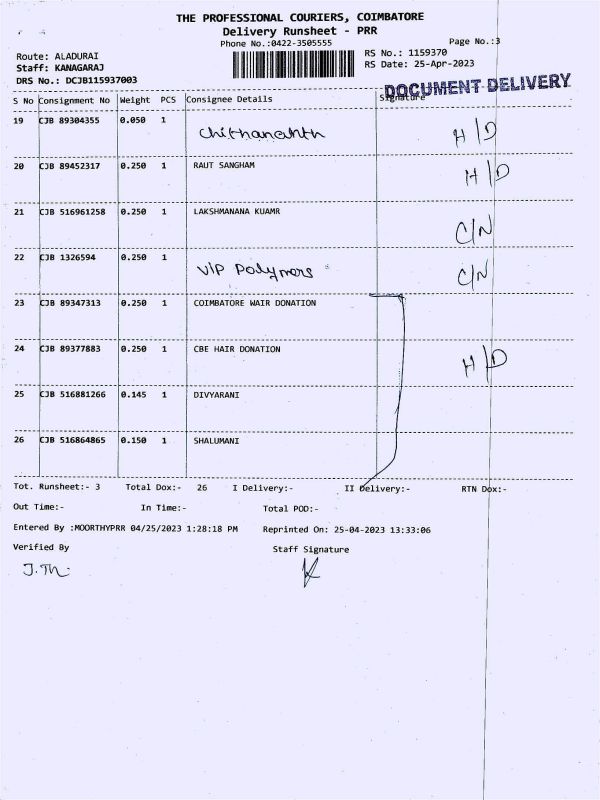 THE PROFESSIONAL COURIERS, COIMBATORE
Delivery Runsheet - PRR
Phone No.:0422-3505555
Page No.:3
Route: ALADURAI
RS No.: 1159370
Staff: KANAGARAJ
RS Date: 25-Apr-2023
DRS No.: DCJB115937003
DOCUMENT DELIVERY
S No Consignment No Weight PCS Consignee Details Signature
19 CJB 89304355 0.050 1 H/D
20 CJB 89452317 0.250 1 RAUT SANGHAM H/D
21 CJB 516961258 0.250 1 LAKSHMANANA KUAMR C/N
22 CJB 1326594 0.250 1 VIP Polymers C/N
23 CJB 89347313 0.250 1 COIMBATORE WAIR DONATION
24 CJB 89377883 0.250 1 CBE HAIR DONATION H/D
25 CJB 516881266 0.145 1 DIVYARANI
26 CJB 516864865 0.150 1 SHALUMANI
Tot. Runsheet:- 3 Total Dox:- 26 I Delivery:- II Delivery:- RTN Dox:-
Out Time:- In Time:- Total POD:-
Entered By :MOORTHYPRR 04/25/2023 1:28:18 PM Reprinted On: 25-04-2023 13:33:06
Verified By Staff Signature